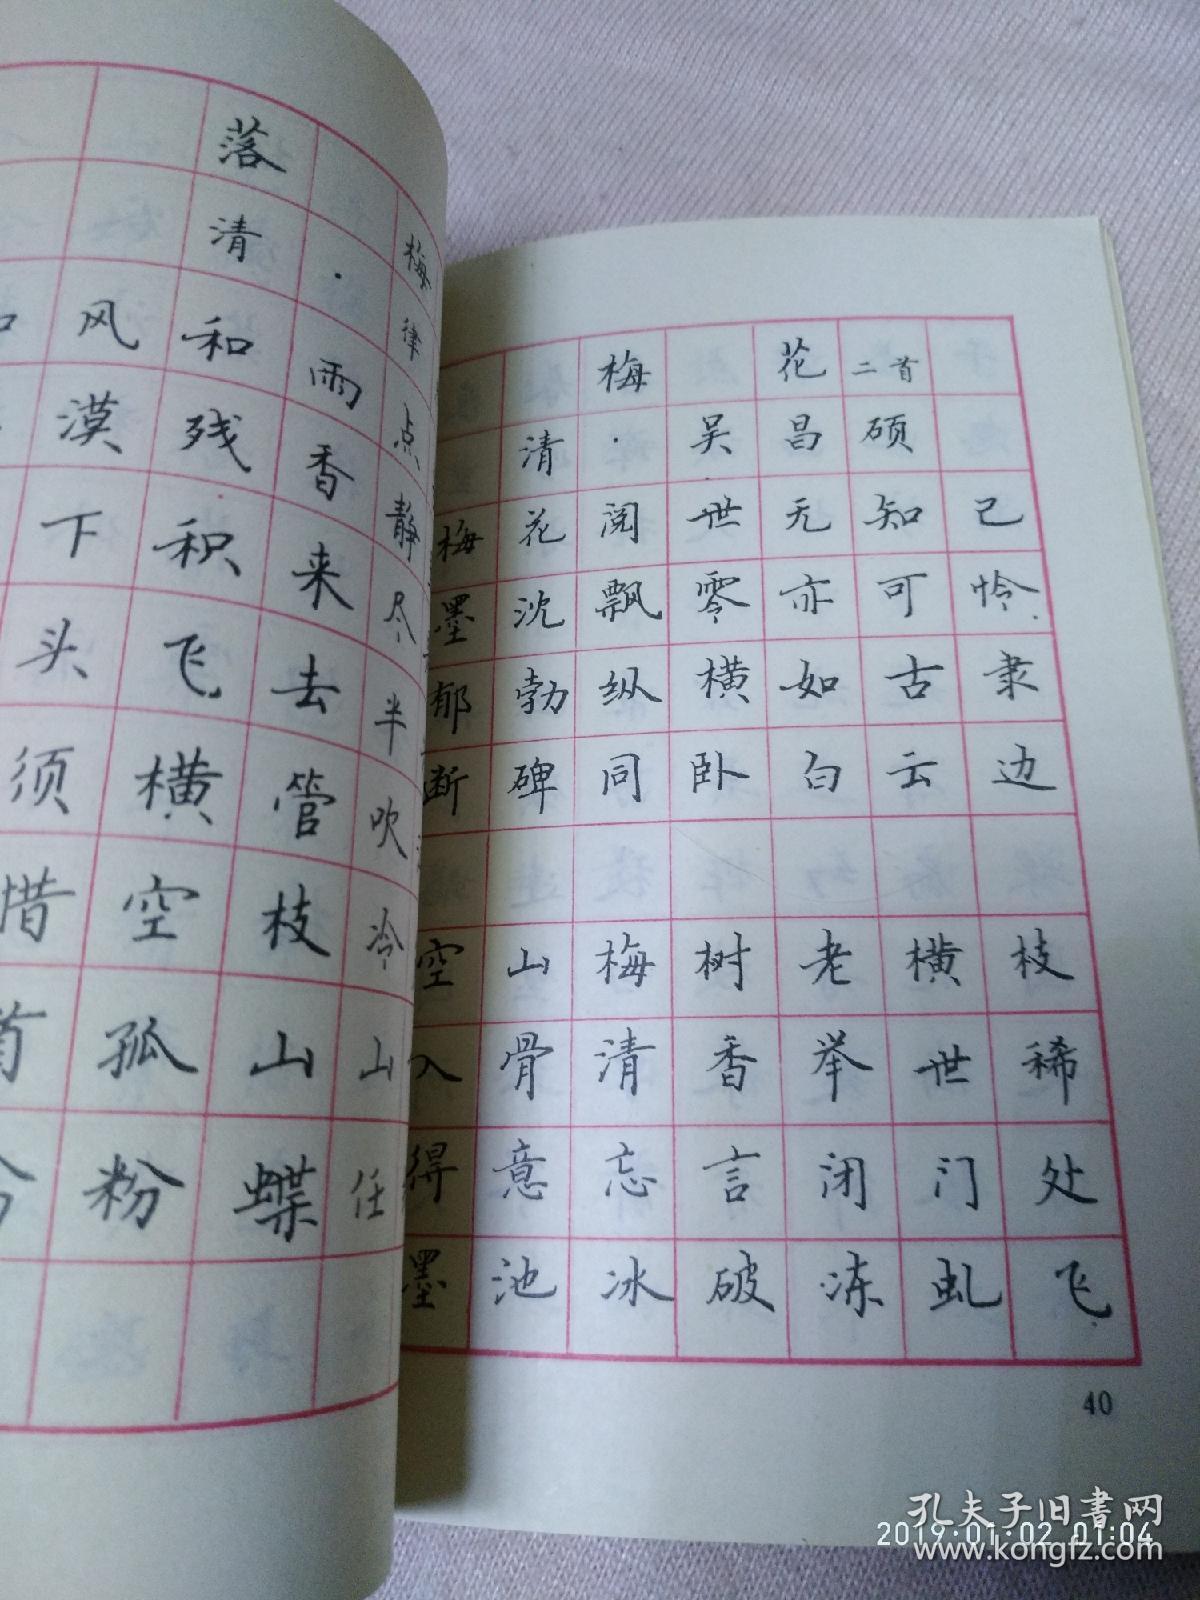 落梅
清·律
风和雨点
漠残香静
下积来尽
头飞去半
须横管吹
惜空枝冷
首孤山山
粉蝶任
梅花二首
清·吴昌硕
梅花阅世无知己
墨沈飘零亦可怜.
郁勃纵横如古隶
断碑同卧白云边
空山梅树老横枝
入骨清香举世稀
得意忘言闭门处
墨池冰破冻虬飞.
40
孔夫子旧書网
2019.01.02 01:04
www.kongfz.com